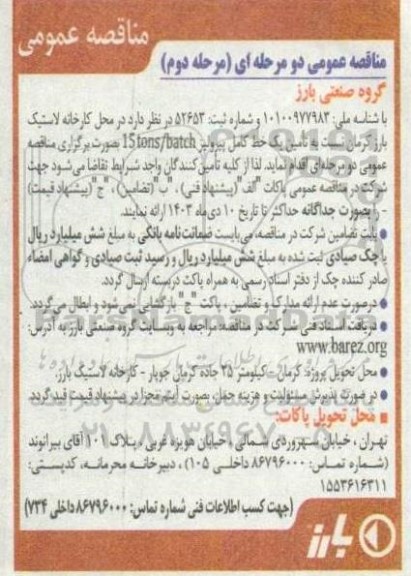 مناقصه عمومی
مناقصه عمومی دو مرحله ای (مرحله دوم)
گروه صنعتی بارز
با شناسه ملی: ۱۰۱۰۰۹۷۷۹۸۳ و شماره ثبت: ۵۲۶۵۳ در نظر دارد در محل کارخانه لاستیک
بارز کرمان نسبت به تأمین یک خط کامل پیرولیز 15tons/batch بصورت برگزاری مناقصه
عمومی دو مرحله‌ای اقدام نماید. لذا از کلیه تأمین کنندگان واجد شرایط تقاضا می‌شود جهت
شرکت در مناقصه عمومی پاکات "الف" (پیشنهاد فنی) ، "ب" (تضامین) ، "ج" (پیشنهاد قیمت)
- را بصورت جداگانه حداکثر تا تاریخ ۱۰ دی‌ماه ۱۴۰۳ ارائه نمایند.
● بابت تضامین شرکت در مناقصه، می‌بایست ضمانت‌نامه بانکی به مبلغ شش میلیارد ریال
یا چک صیادی ثبت شده به مبلغ شش میلیارد ریال و رسید ثبت صیادی و گواهی امضاء
صادر کننده چک از دفتر اسناد رسمی به همراه پاکت دربسته ارسال گردد.
● درصورت عدم ارائه مدارک و تضامین ، پاکت "ج" بازگشایی نمی‌شود و ابطال می‌گردد.
● دریافت اسناد فنی شرکت در مناقصه: مراجعه به وبسایت گروه صنعتی بارز به آدرس:
www.barez.org
● محل تحویل پروژه: کرمان - کیلومتر ۲۵ جاده کرمان جوپار - کارخانه لاستیک بارز.
● در صورت پذیرش مسئولیت و هزینه حمل، بصورت آیتم مجزا در پیشنهاد قیمت قید گردد.
■ محل تحویل پاکات:
تهران ، خیابان سهروردی شمالی ، خیابان هویزه غربی ، پلاک ۱۰۱ آقای بیرانوند
(شماره تماس: ۸۶۷۹۶۰۰۰ داخلی ۱۰۵) ، دبیرخانه محرمانه، کدپستی:
۱۵۵۳۶۱۶۳۱۱
(جهت کسب اطلاعات فنی شماره تماس: ۸۶۷۹۶۰۰۰ داخلی ۷۳۴)
بارز
ParsNamadData
۰۲۱-۸۸۳۴۹۶۷۰